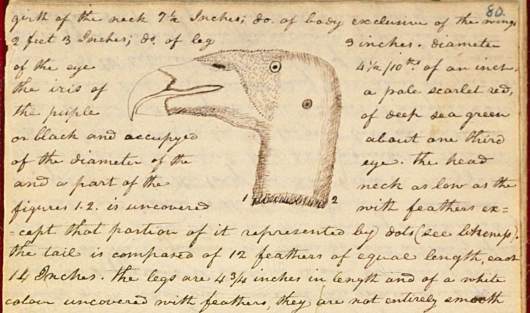 80.
girth of the neck 7½ Inches; do. of body exclusive of the wings
2 feet 3 Inches; do. of leg 3 inches. diameter
of the eye 4½/10ths of an inch,
the iris of a pale scarlet red,
the puple of deep sea green
or black and occupyed about one third
of the diameter of the eye. the head
and a part of the neck as low as the
figures 1.2. is uncovered with feathers ex=
=cept that portion of it represented by dots (see likeness).
1 2
the tail is compased of 12 feathers of equal length, each
14 Inches. the legs are 4¾ inches in length and of a white
colour uncovered with feathers, they are not entirely smooth